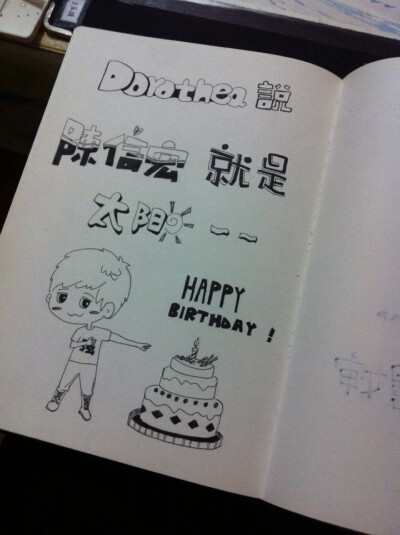 Dorathea 說
陳信宏 就是
太阳 ~ ~
HAPPY
BIRTHDAY !